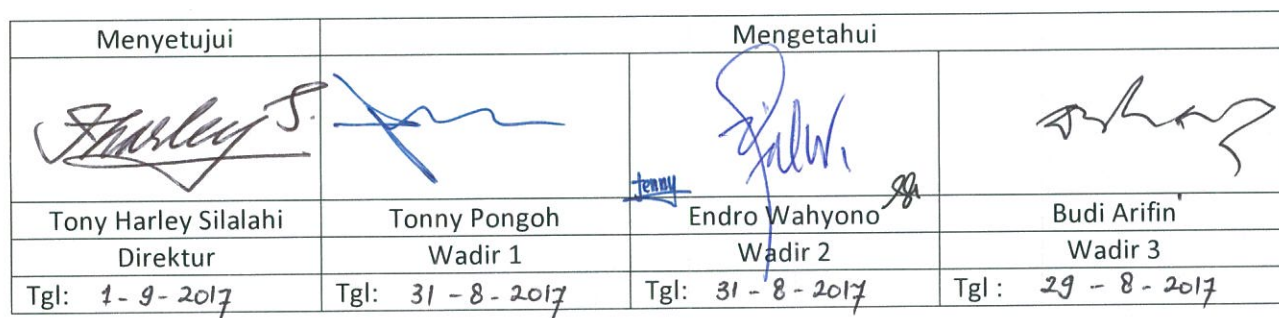 Menyetujui Mengetahui
Tharley S.
Jenny
Tony Harley Silalahi Tonny Pongoh Endro Wahyono Budi Arifin
Direktur Wadir 1 Wadir 2 Wadir 3
Tgl: 1 - 9 - 2017 Tgl: 31 - 8 - 2017 Tgl: 31 - 8 - 2017 Tgl : 29 - 8 - 2017